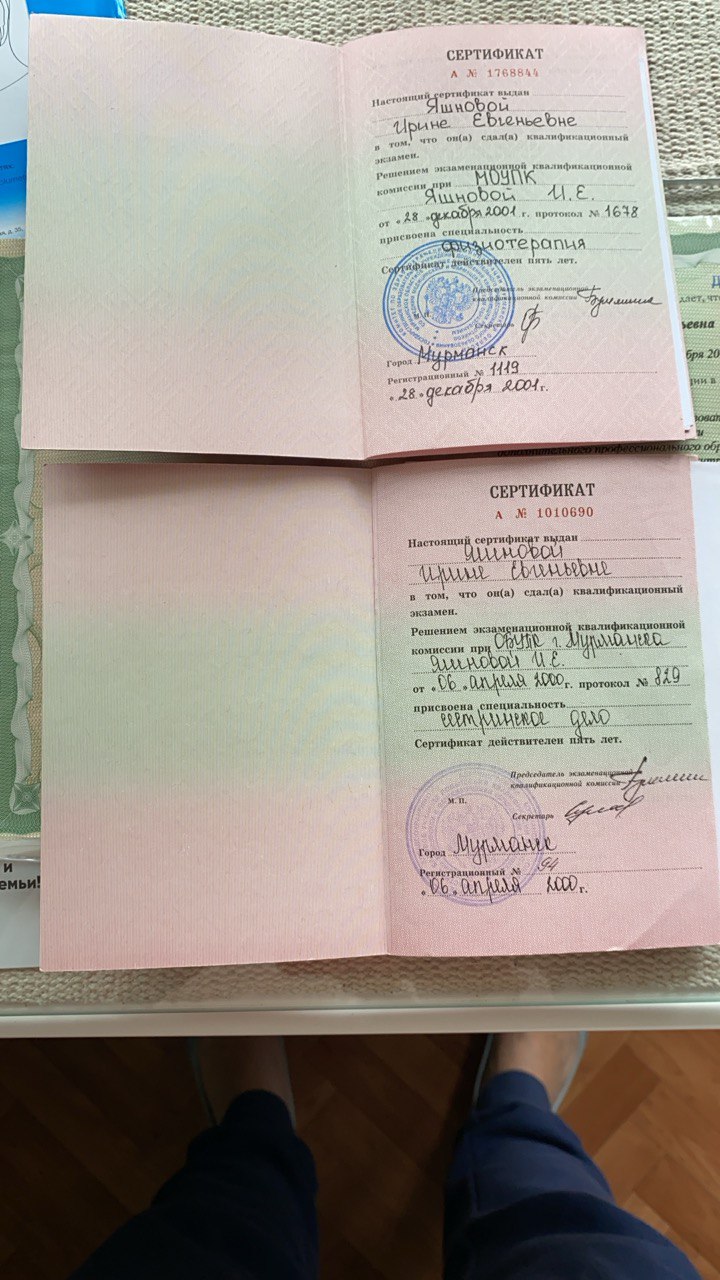 СЕРТИФИКАТ
А № 1768844
Настоящий сертификат выдан
Яшновой
Ирине Евгеньевне
в том, что он(а) сдал(а) квалификационный
экзамен.
Решением экзаменационной квалификационной
комиссии при МОУПК
Яшновой И.Е.
от « 28 » декабря 2001 г. протокол № 1678
присвоена специальность
физиотерапия
Сертификат действителен пять лет.
Председатель экзаменационной
квалификационной комиссии
М. П.
Секретарь
Город Мурманск
Регистрационный № 1119
« 28 » декабря 2001 г.
дополнительного профессионального обр
СЕРТИФИКАТ
А № 1010690
Настоящий сертификат выдан
Яшновой
Ирине Евгеньевне
в том, что он(а) сдал(а) квалификационный
экзамен.
Решением экзаменационной квалификационной
комиссии при ОБУПК г. Мурманска
Яшновой И.Е.
от « 06 » апреля 2000 г. протокол № 829
присвоена специальность
сестринское дело
Сертификат действителен пять лет.
Председатель экзаменационной
квалификационной комиссии
М. П.
Секретарь
Город Мурманск
Регистрационный № 94
« 06 » апреля 2000 г.
и
емьи!